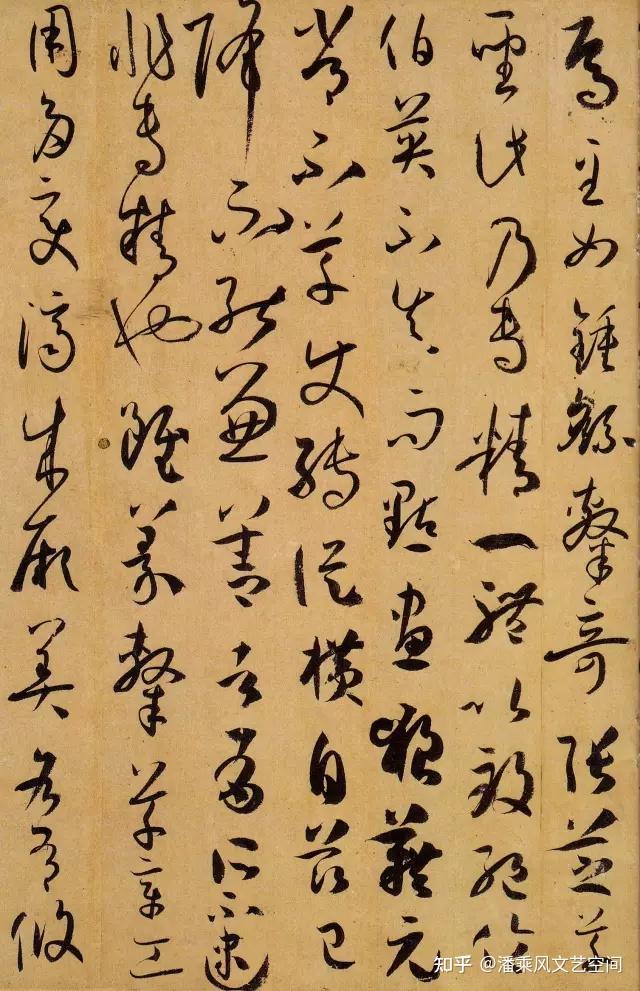 焉至如鍾繇隸奇張芝草
聖此乃專精一體以致絕倫
伯英不真而點畫狼藉元
常不草使轉縱橫自茲已
降不能兼善者有所不逮
非專精也雖篆隸草章工
用多變濟成厥美各有攸
知乎 @潘乘风文艺空间